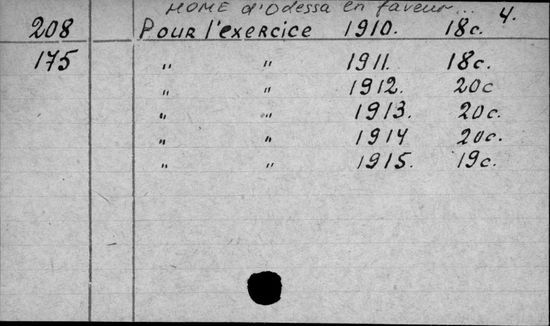 HOME d'Odessa en faveur... 4.
208 Pour l'exercice 1910. 18c.
175 " " 1911. 18c.
" " 1912. 20c
" " 1913. 20c.
" " 1914 20c.
" " 1915. 19c.